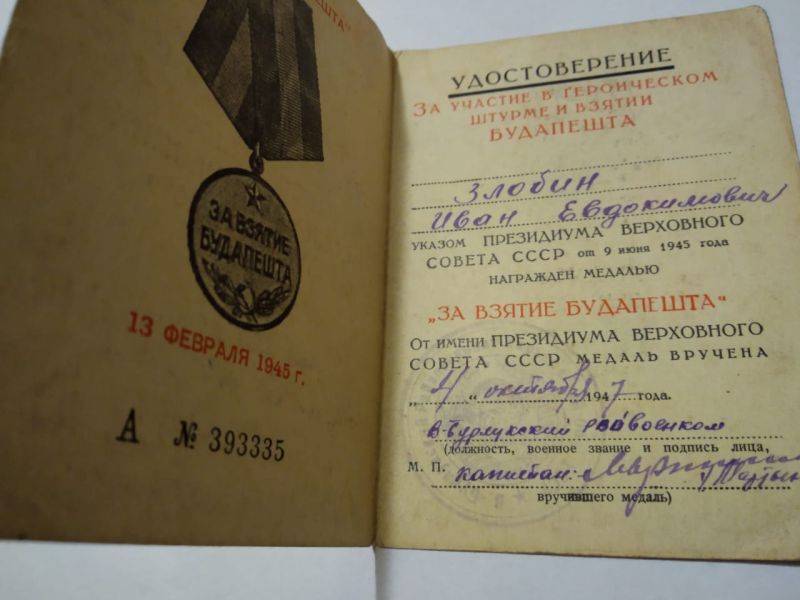 ЕШТА"
ЗА ВЗЯТИЕ
БУДАПЕШТА
13 ФЕВРАЛЯ 1945 г.
А № 393335
УДОСТОВЕРЕНИЕ
ЗА УЧАСТИЕ В ГЕРОИЧЕСКОМ
ШТУРМЕ И ВЗЯТИИ
БУДАПЕШТА
Злобин
Иван Евдокимович
УКАЗОМ ПРЕЗИДИУМА ВЕРХОВНОГО
СОВЕТА СССР от 9 июня 1945 года
НАГРАЖДЕН МЕДАЛЬЮ
„ЗА ВЗЯТИЕ БУДАПЕШТА"
От имени ПРЕЗИДИУМА ВЕРХОВНОГО
СОВЕТА СССР МЕДАЛЬ ВРУЧЕНА
„4" октября 1947 года.
В-Бурлукский райвоенком
(должность, военное звание и подпись лица,
М. П. капитан:
вручившего медаль)